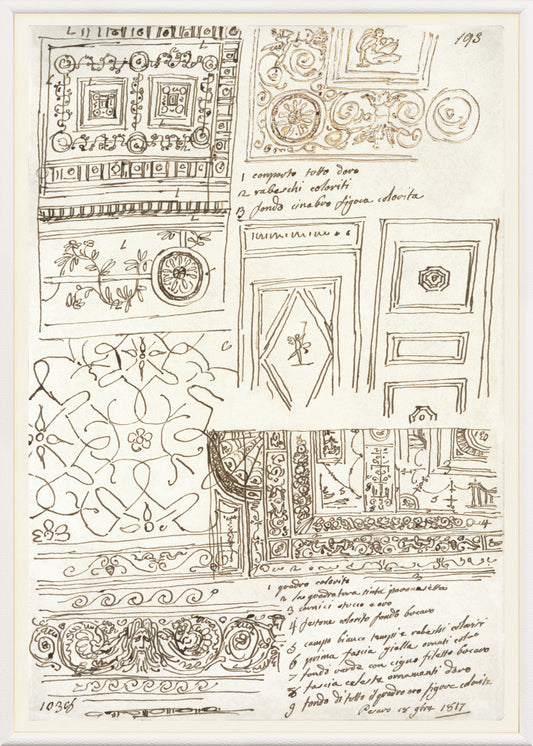 193
1 comparto tutto doro
2 rabeschi coloriti
3 fondo cinabro figora colorita
1 quadro colorito
2 la quadratura tinta pavonaetta
3 cornici stucco e oro
4 festone colorito fondo
5 campo bianco tempj e rabeschi coloriti
6 prima fascia gialla ornati
7 fondi verdi con cigno filetto
8 fascia celeste ornamenti doro
9 fondo di tutto il quadro oro figore colorite
Pesaro 18 1817
1036